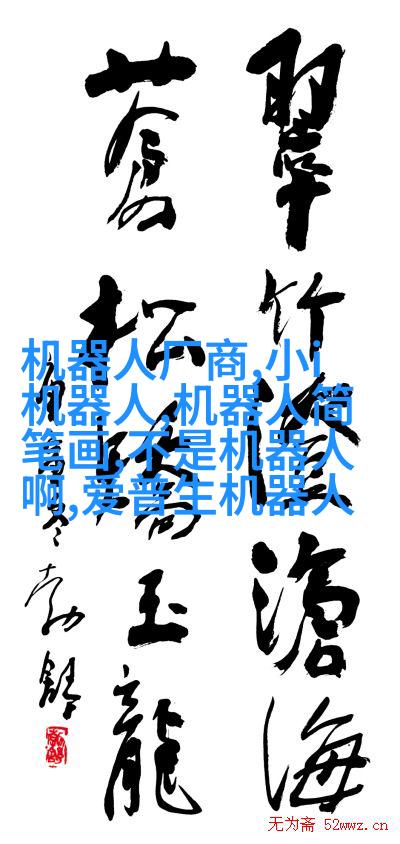 翠竹滄海
蒼松玉龍
机器人厂商,小i
机器人,机器人简
笔画,不是机器人
啊,爱普生机器人
无为斋 52wwz.cn